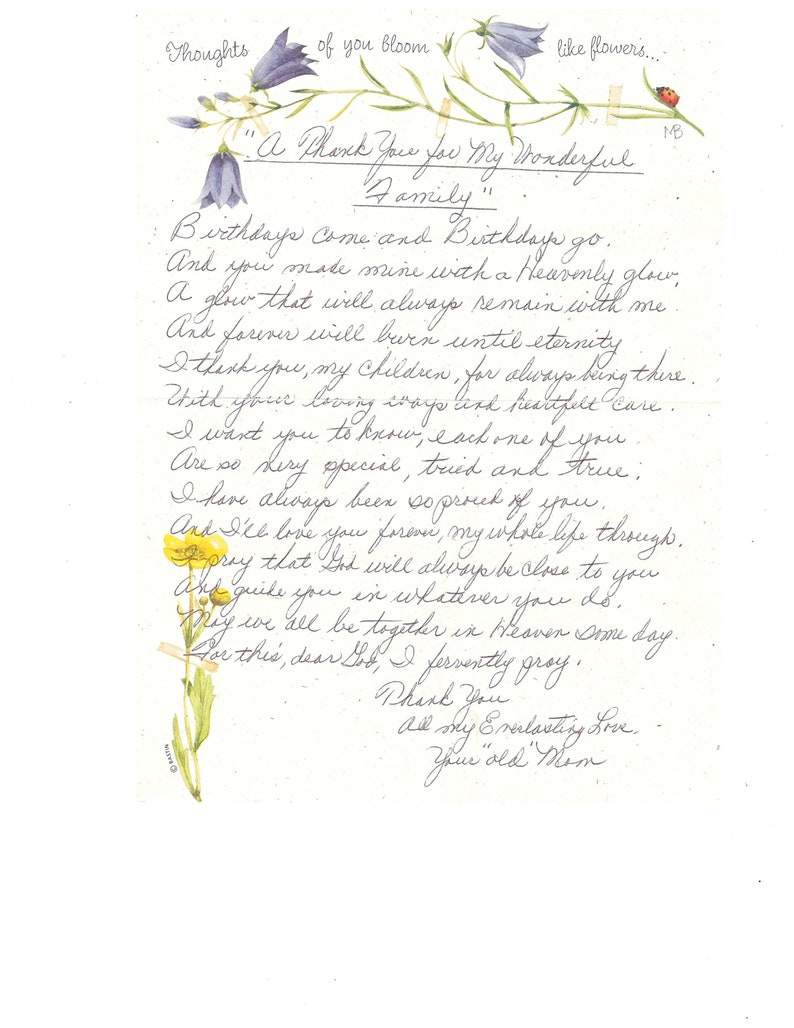 Thoughts of you bloom like flowers...
MB
"A Thank You for My Wonderful
Family"
Birthdays come and Birthdays go.
And you made mine with a Heavenly glow,
A glow that will always remain with me
And forever will burn until eternity
I thank you, my children, for always being there.
With your loving ways and heartfelt care.
I want you to know, each one of you
Are so very special, tried and true.
I have always been so proud of you.
And I'll love you forever, my whole life through.
I pray that God will always be close to you
And guide you in whatever you do.
May we all be together in Heaven some day.
For this, dear God, I fervently pray.
Thank You
All my Everlasting Love.
Your "old" Mom
© BASTIN